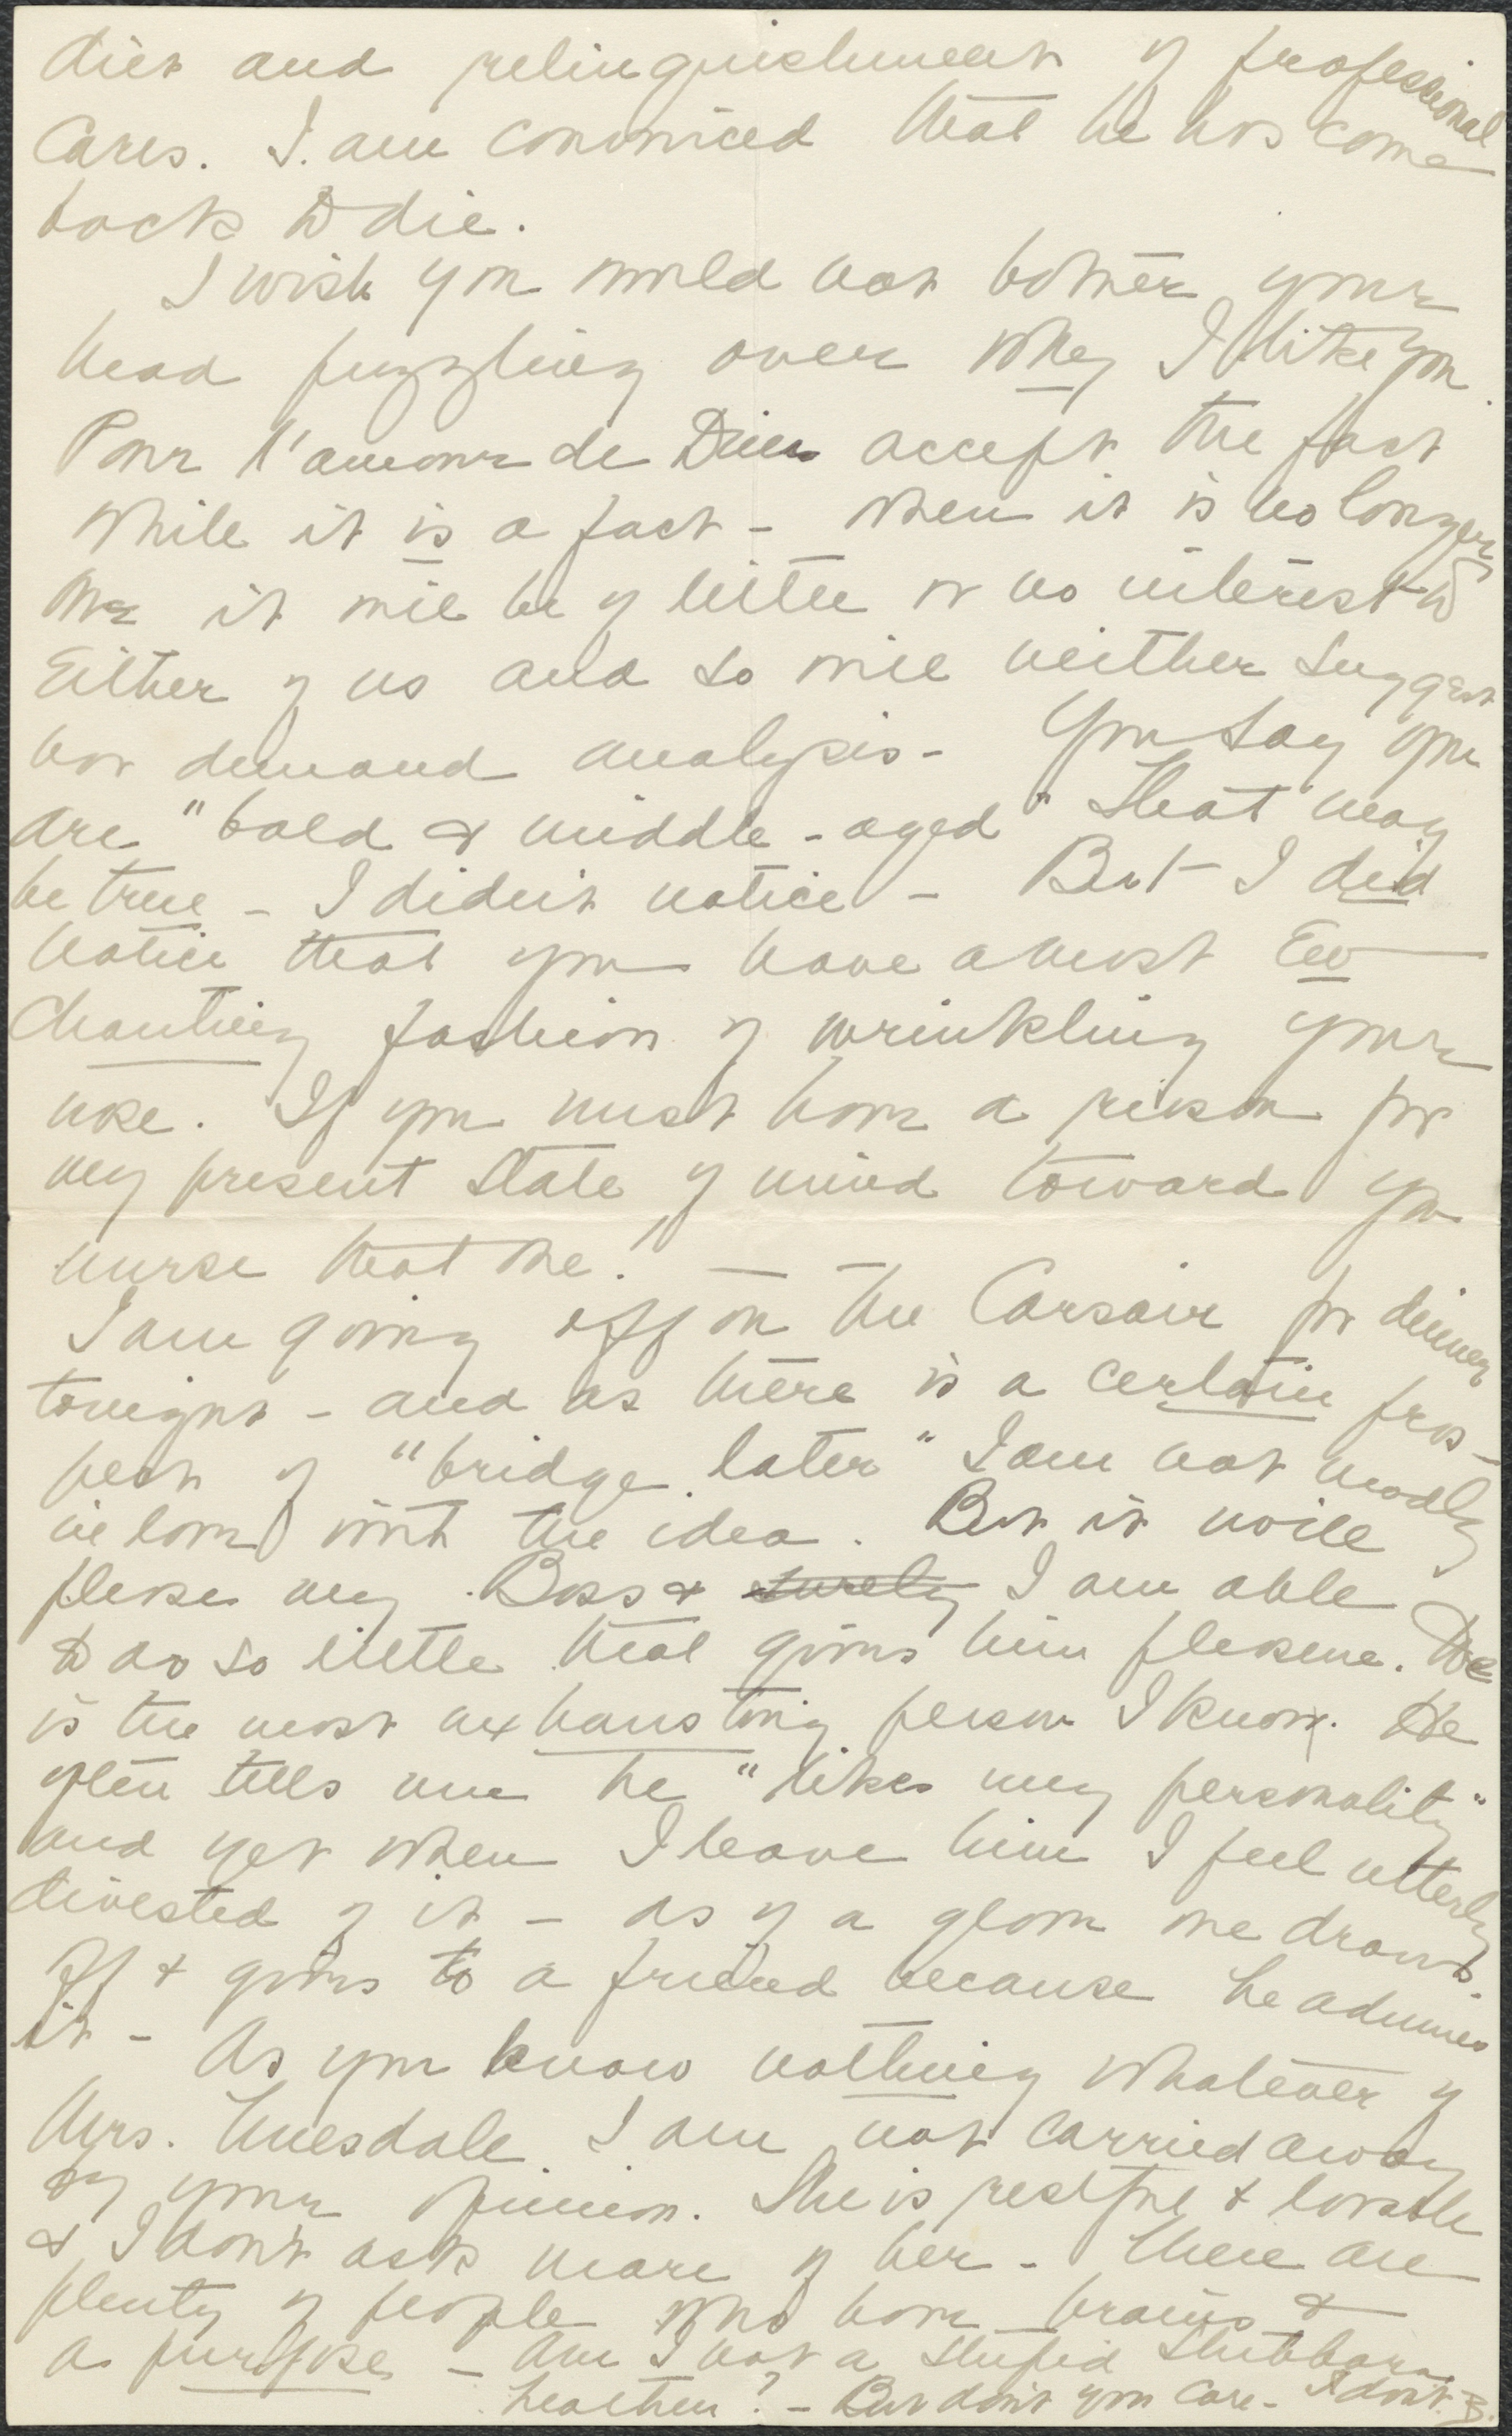 diet and relinquishment of professional
cares. I am convinced that he has come
back to die.
I wish you would not bother your
head puzzling over why I like you.
Pour l'amour de Dieu accept the fact
while it is a fact - when it is no longer
one it will be of little or no interest to
either of us and so will neither suggest
nor demand analysis - You say you
are "bald & middle-aged" That may
be true - I didn't notice - But I did
notice that you have a most En-
chanting fashion of wrinkling your
nose. If you must have a reason for
my present state of mind toward you
nurse that one! -
I am going off on the Corsair for dinner
tonight - and as there is a certain pros-
pect of "bridge later" I am not madly
in love with the idea. But it will
please my Boss & surely I am able
to do so little that gives him pleasure. He
is the most exhausting person I know. He
often tells me he "likes my personality"
and yet when I leave him I feel utterly
divested of it - as if a glove one draws
off & gives to a friend because he admires
it - As you know nothing whatever of
Mrs. Tuesdale I am not carried away
by your opinion. She is restful & lovable
& I don't ask more of her - There are
plenty of people who have brains &
a purpose - Am I not a stupid stubborn
heathen? - But don't you care - I don't. B.